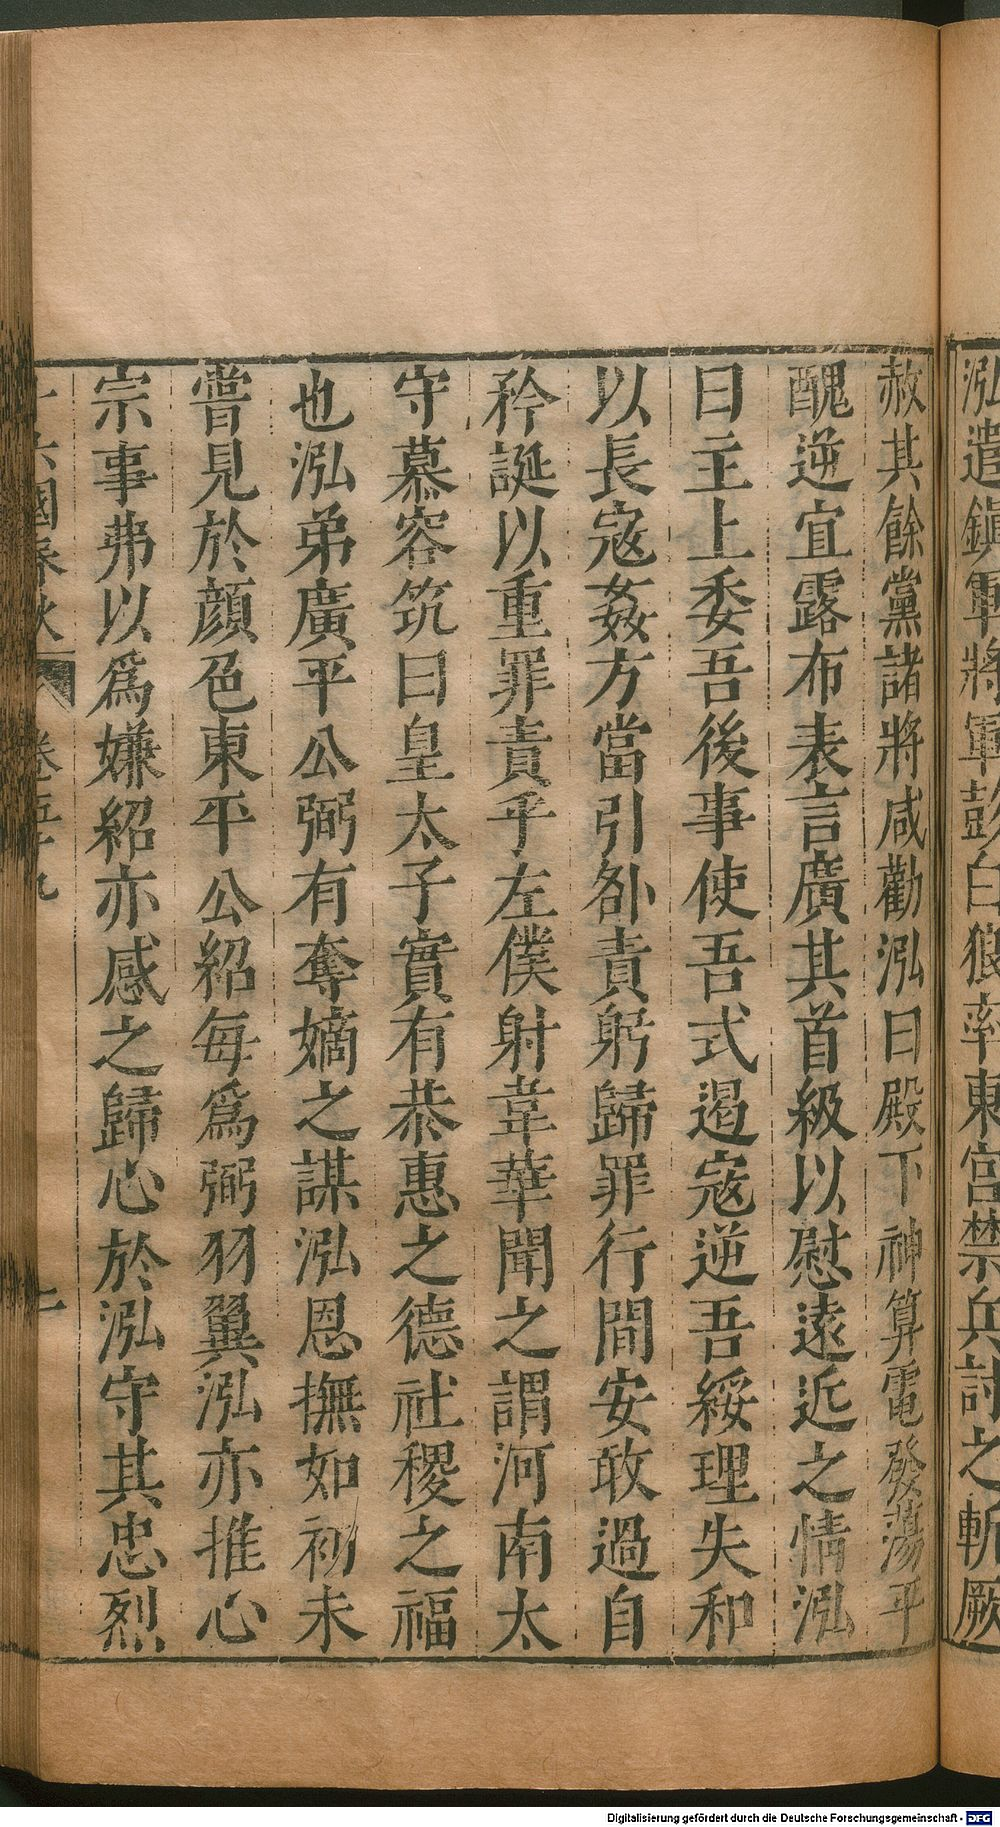 泓遣鎮軍將軍彭白狼率東宮禁兵討之斬厥
赦其餘黨諸將咸勸泓曰殿下神算電發蕩平
醜逆宜露布表言廣其首級以慰遠近之情泓
曰主上委吾後事使吾式遏寇逆吾綏理失和
以長寇姦方當引咎責躬歸罪行間安敢過自
矜誕以重罪責乎左僕射韋華聞之謂河南太
守慕容筑曰皇太子實有恭惠之德社稷之福
也泓弟廣平公弼有奪嫡之謀泓恩撫如初未
嘗見於顏色東平公紹每爲弼羽翼泓亦推心
宗事弗以爲嫌紹亦感之歸心於泓守其忠烈
十六國春秋 卷五十九
Digitalisierung gefördert durch die Deutsche Forschungsgemeinschaft - DFG